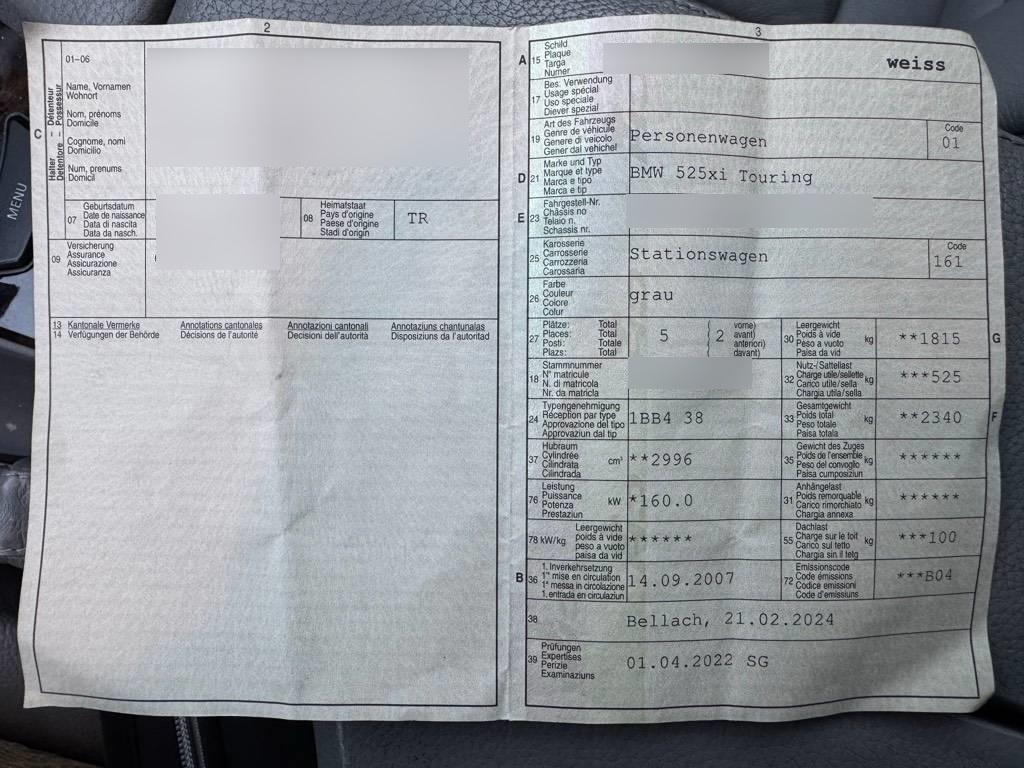 2
01–06
Name, Vornamen
Wohnort
Nom, prénoms
Domicile
Cognome, nomi
Domicilio
Num, prenums
Domicil
C
Halter – Détenteur
Detentore – Possessur
07
Geburtsdatum
Date de naissance
Data di nascita
Data da nasch.
08
Heimatstaat
Pays d'origine
Paese d'origine
Stadi d'origin
TR
09
Versicherung
Assurance
Assicurazione
Assicuranza
13 Kantonale Vermerke Annotations cantonales Annotazioni cantonali Annotaziuns chantunalas
14 Verfügungen der Behörde Décisions de l'autorité Decisioni dell'autorità Disposiziuns da l'autoritad
MENU
3
A 15
Schild
Plaque
Targa
Numer
weiss
17
Bes. Verwendung
Usage spécial
Uso speciale
Diever spezial
19
Art des Fahrzeugs
Genre de véhicule
Genere di veicolo
Gener dal vehichel
Personenwagen
Code
01
D 21
Marke und Typ
Marque et type
Marca e tipo
Marca e tip
BMW 525xi Touring
E 23
Fahrgestell-Nr.
Châssis no
Telaio n.
Schassis nr.
25
Karosserie
Carrosserie
Carrozzeria
Carossaria
Stationswagen
Code
161
26
Farbe
Couleur
Colore
Colur
grau
27
Plätze: Total
Places: Total
Posti: Totale
Plazs: Total
5 ( 2
vorne)
avant)
anteriori)
davant)
30
Leergewicht
Poids à vide
Peso a vuoto
Paisa da vid
kg
**1815
G
18
Stammnummer
N° matricule
N. di matricola
Nr. da matricla
32
Nutz-/Sattellast
Charge utile/sellette
Carico utile/sella
Chargia utila/sella
kg
***525
24
Typengenehmigung
Réception par type
Approvazione del tipo
Approvaziun dal tip
1BB4 38
33
Gesamtgewicht
Poids total
Peso totale
Paisa totala
kg
**2340
F
37
Hubraum
Cylindrée
Cilindrata
Cilindrada
cm³
**2996
35
Gewicht des Zuges
Poids de l'ensemble
Peso del convoglio
Paisa cumposiziun
kg
******
76
Leistung
Puissance
Potenza
Prestaziun
kW
*160.0
31
Anhängelast
Poids remorquable
Carico rimorchiato
Chargia annexa
kg
******
78 kW/kg
Leergewicht
poids à vide
peso a vuoto
paisa da vid
******
55
Dachlast
Charge sur le toit
Carico sul tetto
Chargia sin il tetg
kg
***100
B 36
1. Inverkehrsetzung
1re mise en circulation
1a messa in circolazione
1. entrada en circulaziun
14.09.2007
72
Emissionscode
Code émissions
Codice emissioni
Code d'emissiuns
***B04
38
Bellach, 21.02.2024
39
Prüfungen
Expertises
Perizie
Examinaziuns
01.04.2022 SG